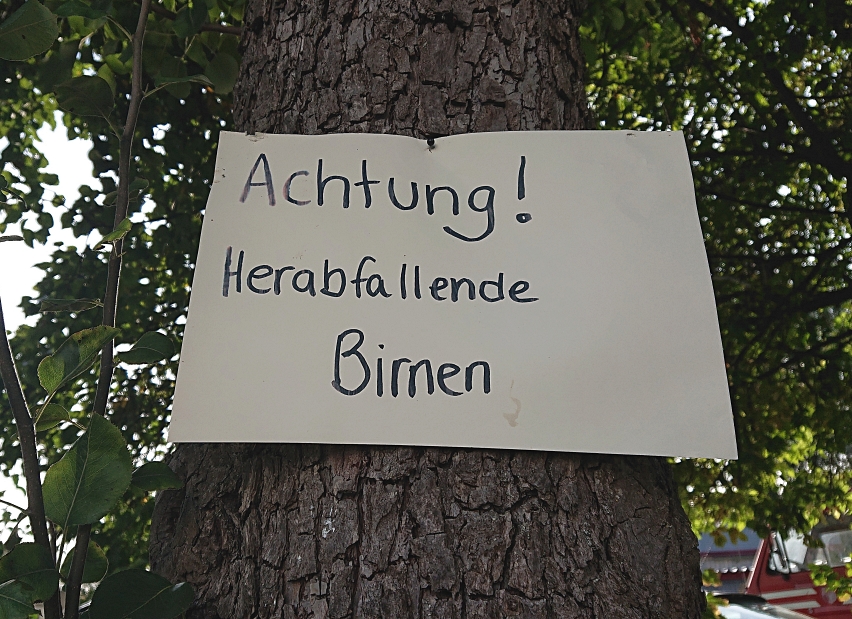 Achtung!
Herabfallende
Birnen